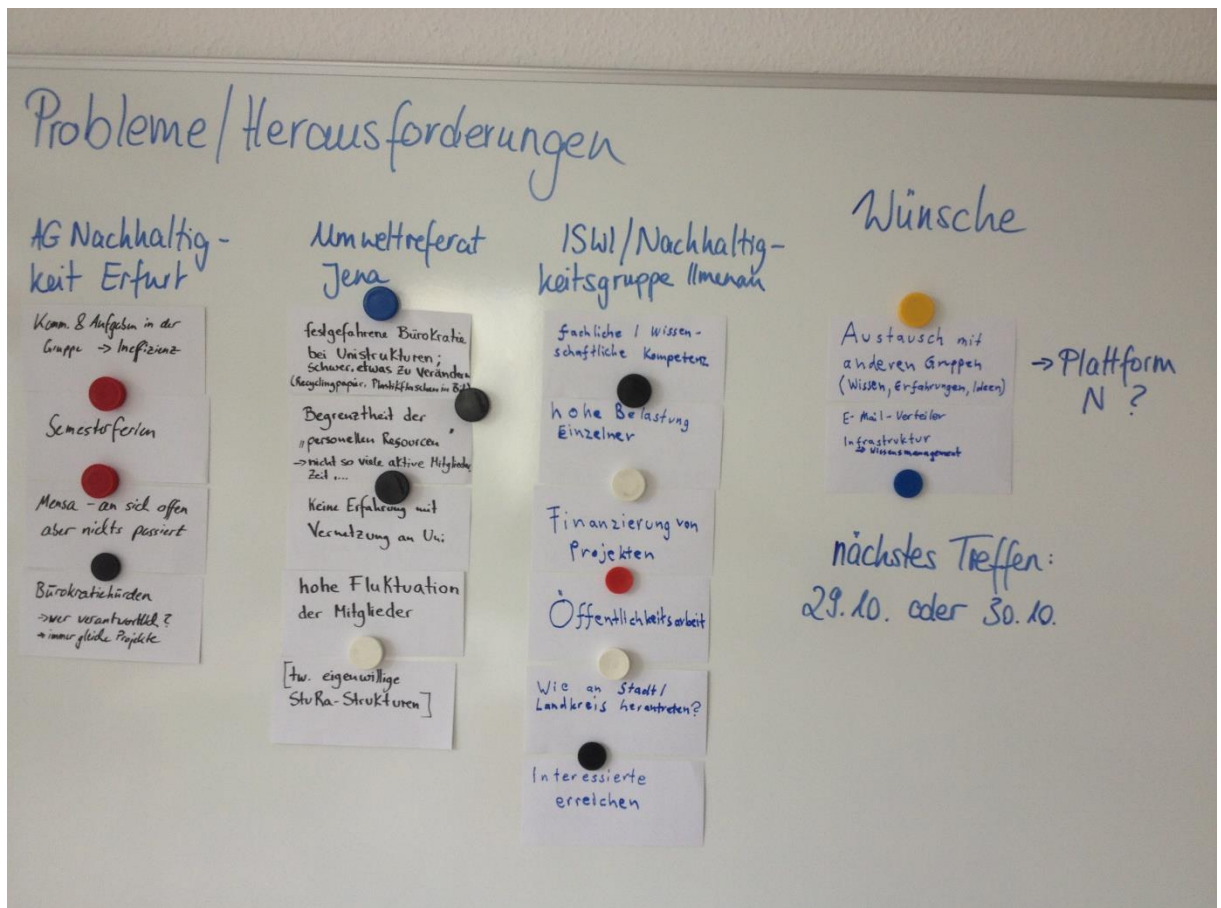 Probleme/Herausforderungen
AG Nachhaltig-
keit Erfurt
Komm. & Aufgaben in der
Gruppe → Ineffizienz
Semesterferien
Mensa - an sich offen
aber nichts passiert
Bürokratiehürden
→ wer verantwortlich?
→ immer gleiche Projekte
Umweltreferat
Jena
festgefahrene Bürokratie
bei Unistrukturen;
schwer, etwas zu verändern
(Recyclingpapier, Plastikflaschen in
Begrenztheit der
"personellen Resourcen"
→ nicht so viele aktive Mitglieder,
Zeit ....
Keine Erfahrung mit
Vernetzung an Uni
hohe Fluktuation
der Mitglieder
[tw. eigenwillige
StuRa-Strukturen]
ISWI/Nachhaltig-
keitsgruppe Ilmenau
fachliche / Wissen-
schaftliche Kompetenz
hohe Belastung
Einzelner
Finanzierung von
Projekten
Öffentlichkeitsarbeit
Wie an Stadt/
Landkreis herantreten?
Interessierte
erreichen
Wünsche
Austausch mit
anderen Gruppen
(Wissen, Erfahrungen, Ideen)
E-Mail-Verteiler
Infrastruktur
→ Wissensmanagement
→ Plattform
N ?
nächstes Treffen:
29.10. oder 30.10.